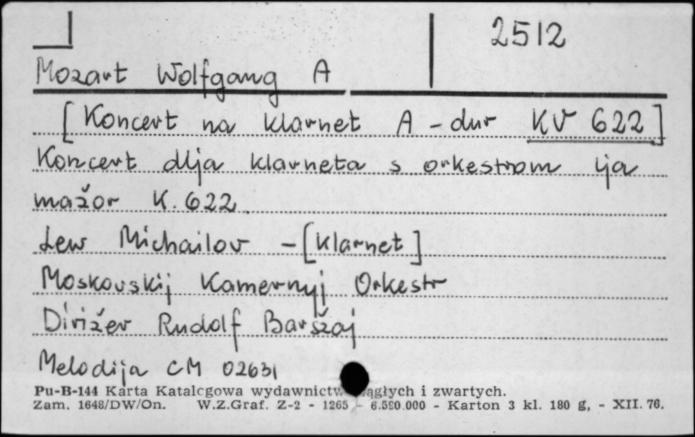 2512
Mozart Wolfgang A
[Koncert na klarnet A-dur KV 622]
Koncert dlja klarneta s orkestrom lja
mažor K. 622.
Lew Michailov - [klarnet]
Moskovskij Kamernyj Orkestr
Dirižer Rudolf Baršaj
Melodija CM 02631
Pu-B-144 Karta Katalogowa wydawnictw ciągłych i zwartych.
Zam. 1648/DW/On. W.Z.Graf. Z-2 - 1265 - 6.500.000 - Karton 3 kl. 180 g, - XII. 76.